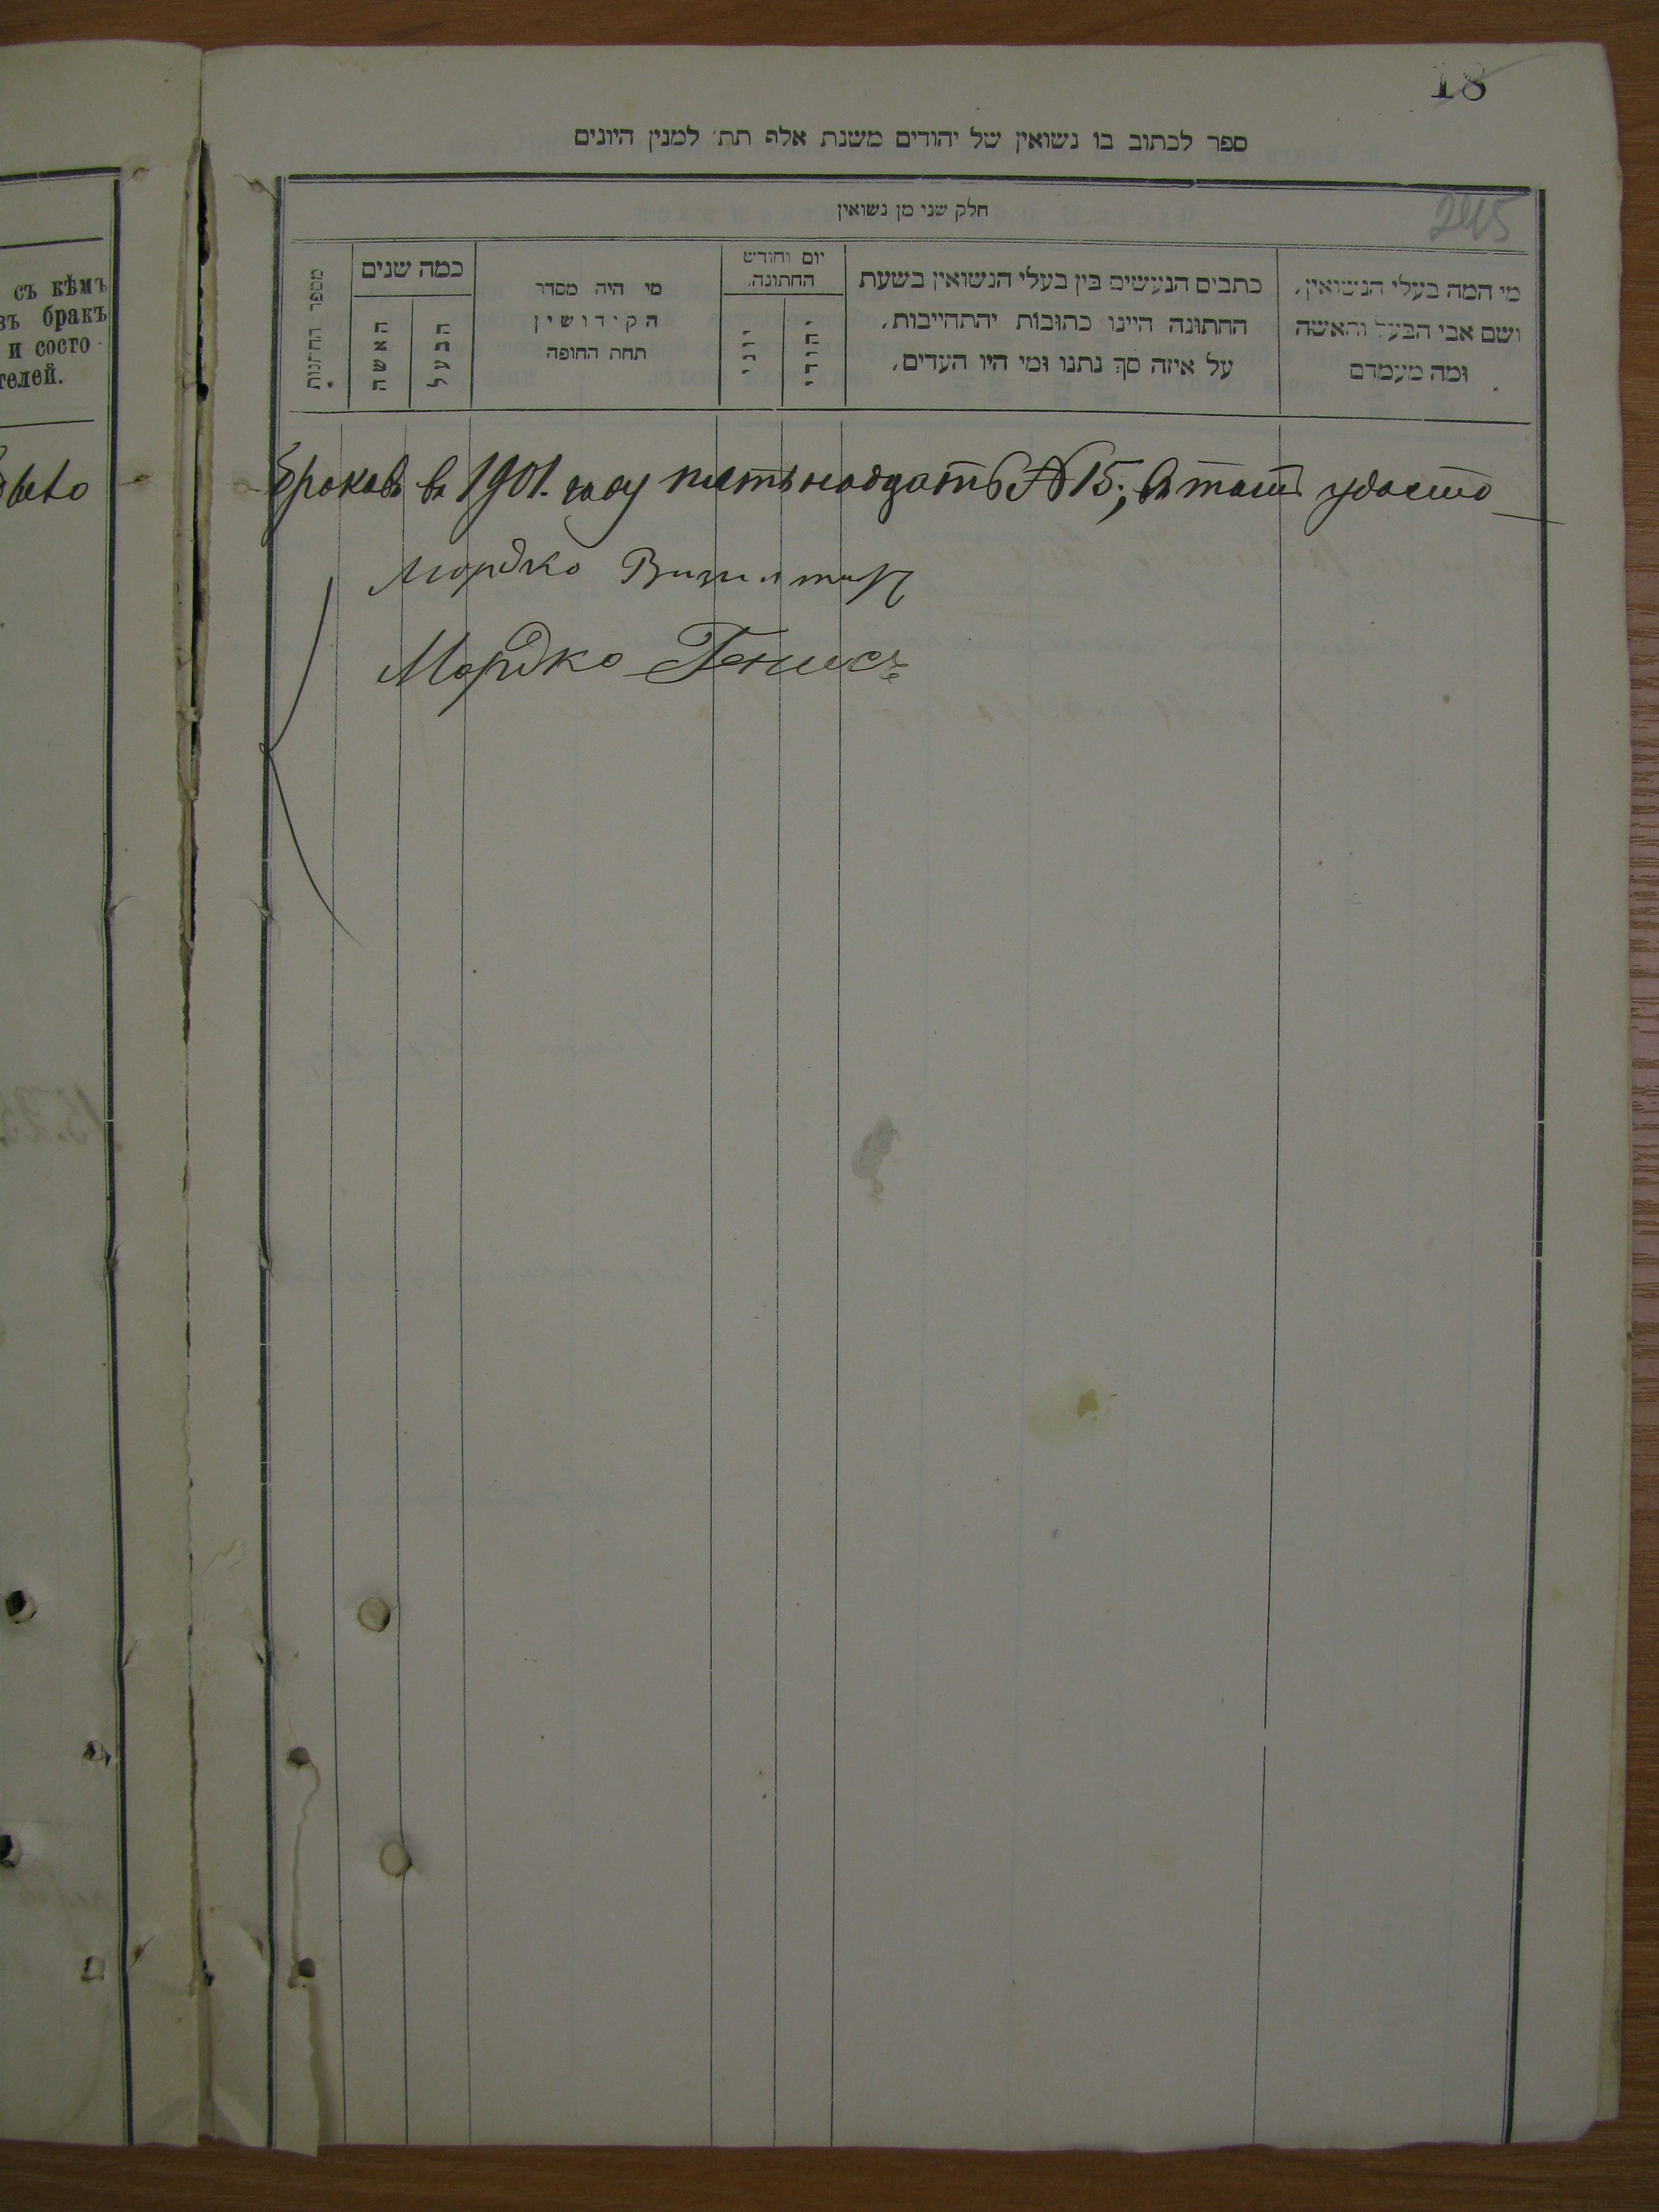 18
ספר לכתוב בו נשואין של יהודים משנת אלף תת׳ למנין היונים
חלק שני מן נשואין
245
מי המה בעלי הנשואין,
ושם אבי הבעל והאשה
ומה מעמדם
כתבים הנעשים בין בעלי הנשואין בשעת
החתונה היינו כתובות והתחייבות,
על איזה סך נתנו ומי היו העדים,
יום וחודש
החתונה
יהודי
יוני
מי היה מסדר
הקידושין
תחת החופה
כמה שנים
הבעל
האשה
מספר החתונות
съ кѣмъ
бракъ
и состо
телей.
браковъ въ 1901. году пятьнадцать № 15; въ томъ удосто
Мордко
Мордко Генисъ